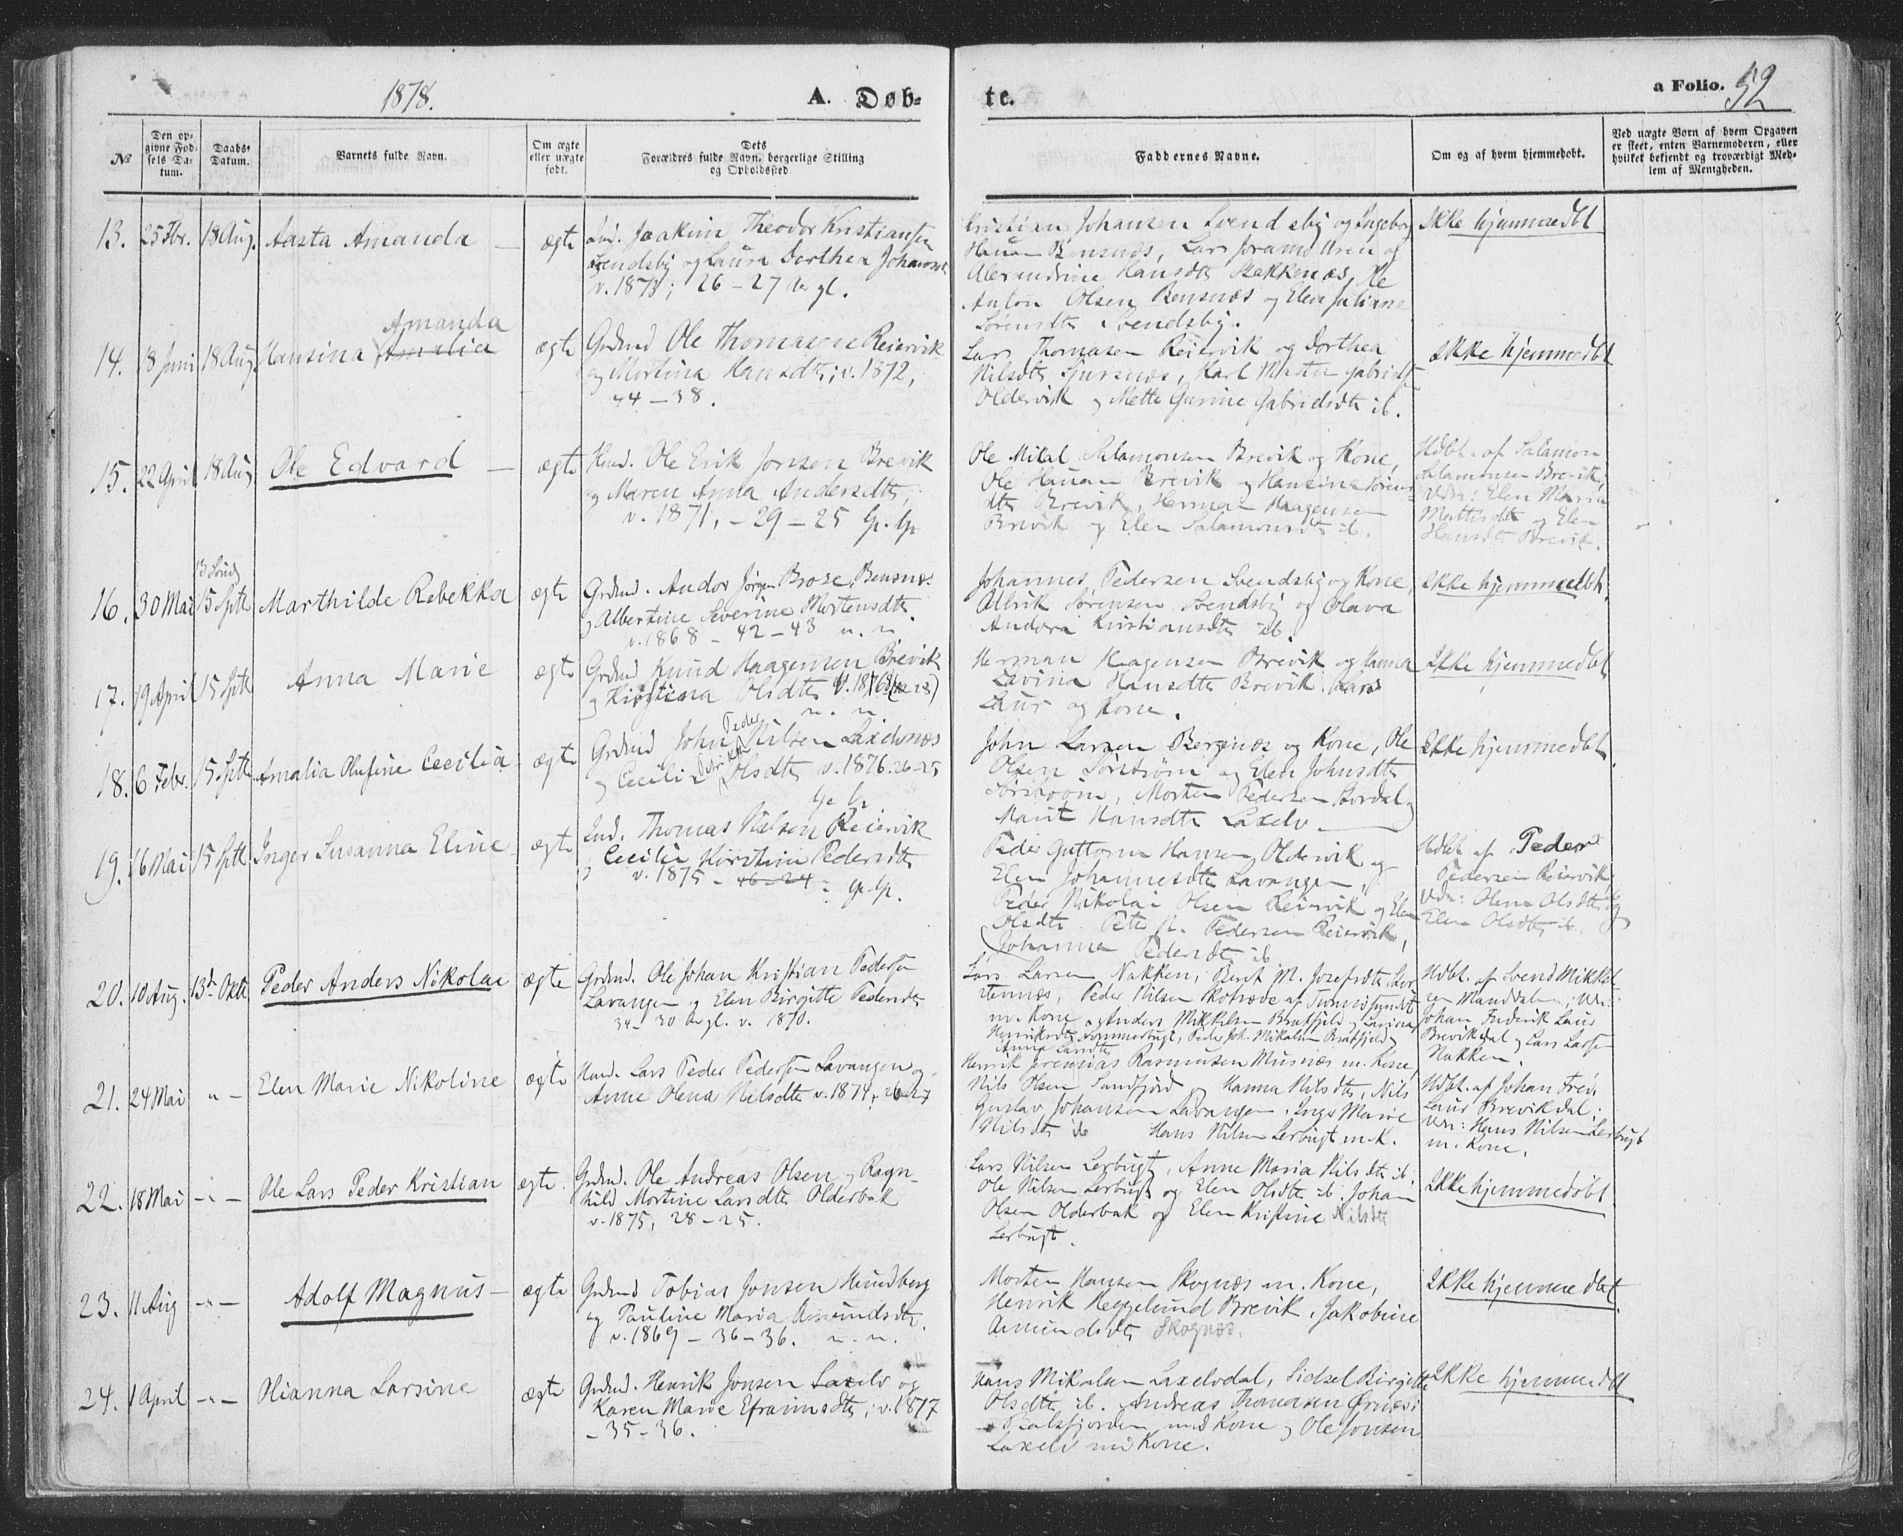 1878.
A. Døb-
te.
a Folio. 52
No
Den op-
givne Fød-
sels Da-
tum.
Daabs-
Datum.
Barnets fulde Navn.
Om ægte
eller uægte
født.
Dets
Forældres fulde Navn, borgerlige Stilling
og Opholdssted
Faddernes Navne.
Om og af hvem hjemmedøbt.
Ved uægte Børn af hvem Opgaven
er skeet, enten Barnemoderen, eller
hvilket bekjendt og troværdigt Med-
lem af Menigheden.
13. 25 Fbr. 18 Aug. Aasta Amanda — ægte
Ind. Joakim Theodor Kristiansen
Svendsby og Laura Dorthea Johansdt
v. 1873; 26 - 27 Aar gl.
Kristian Johansen Svendsby og Ingeborg
Hansn Bensnæs, Lars Joramo Uren og
Alexandrine Hansdtr Stakkenæs, Ole
Anton Olsen Bensnæs og Elen Juliane
Sørensdtr Svendsby.
Ikke hjemmedbt
14. 18 Juni 18 Aug Hansina Amalia
Amanda
ægte
Grdmd Ole Thomasen Reiervik
og Mortina Hansdtr; v. 1872,
44 - 38.
Lars Thomasen Reiervik og Dorthea
Nilsdtr Sjursnæs, Karl Martin Gabrielsn
Oldervik og Mette Gurine Gabrielsdtr ib.
Ikke hjemmedbt
15. 22 April 18 Aug Ole Edvard — ægte
Hmd. Ole Erik Jonsen Brevik
og Maren Anna Andersdtr;
v. 1871, - 29 - 25 Gp. Gp
Ole Mikal Salamonsen Brevik og Kone,
Ole Hansen Brevik og Hansine Sørens-
dtr Brevik, Herman Haagensen
Brevik og Elen Salamonsdtr ib.
Hdbt. af Salamon
Salamonsen Brevik,
Vdn: Elen Maria
Mattisdtr og Elen
Hansdtr Brevik.
16. 30 Mai 15 Sptb Marthilde Rebekka ægte
Grdmd. Andor Jørgen Brose, Bensnæs
og Albertine Severine Mortensdtr
v. 1868 - 42 - 43 n. n.
Johannes Pedersen Svendsby og Kone,
Albrik Sørensen Svendsby og Olava
Andora Kristiansdtr ib.
Ikke hjemmedbt.
17. 19 April 15 Sptb Anna Marie ægte
Grdmd Knud Haagensen Brevik
og Kirstina Olsdtr
n. n.
Herman Haagensen Brevik og Hanna
Lavina Hansdtr Brevik, Lars
Laur og Kone.
Ikke hjemmedbt
18. 6 Febr. 15 Sptb Amalia Olufine Cecilia ægte
Grdmd John Peder Nilsen Laxelvnæs
og Cecilia Olsdtr v. 1876. 26-25
Gp. Gp
John Larsen Bergenæs og Kone, Ole
Olsen Sørstrøm og Elen Johnsdtr
Sørstrøm, Morten Pedersen Stordal og
Marit Hansdtr Laxelv
Ikke hjemmedbt
19. 16 Mai 15 Sptb Inger Susanna Eline ægte
Ind. Thomas Nilsen Reiervik
og Cecilie Kirstine Pedersdtr
v. 1875 - 46-24 - Gp. Gp.
Peder Guttorm Hansen, Oldervik og
Elen Johannesdtr Lavangen,
Peder Nikolai Olsen Reiervik og Elen
Olsdtr Peter N. Pedersen Reiervik,
Johanna Pedersdtr ib
Hdbt af Peder
Pedersen Reiervik
Vdn: Olena Olsdtr og
Elen Olsdtr ib.
20. 10 Aug. 13d Oktb Peder Anders Nikolai ægte
Grdmd. Ole Johan Kristian Pedersen
Lavangen og Elen Birgitte Pedersdtr
34 - 30 Aar gl. v. 1870.
Lars Larsen Nakken, Berit M. Josefsdtr Ler-
stennæs, Peder Nilsen Skotræde af Tromsøsundet
m. Kone og Anders Mikkelsen Bratfjeld og Lavina
Henriksdtr Sommerbugt, Peder Joh. Nikolaisn Bratfjeld og
Anna Larsdtr
Hdbt. af Svend Mikkel-
sen Manddalen; Vdn:
Johan Frederik Laur
Brevikdal og Lars Larsen
Nakken.
21. 24 Mai " - Elen Marie Nikoline ægte
Hmd. Lars Peder Pedersen Lavangen og
Anne Olena Nilsdtr v. 1874; 26-27
Henrik Jeremias Rasmussen Musnæs m. Kone,
Nils Olsen Sandfjord og Hanna Nilsdtr, Nils
Gustav Johansen Lavangen, Inga Marie
Nilsdtr ib Hans Nilsen Lerbugt m. K.
Hdbt. af Johan Fredr.
Laur Brevikdal;
Vdn: Hans Nilsen Lerbugt
m. Kone.
22. 18 Mai -"- Ole Lars Peder Kristian ægte.
Grdmd. Ole Andreas Olsen og Ragn-
hild Mortine Larsdtr Olderbak
v. 1875, 28 - 25.
Lars Nilsen Lerbugt, Anne Maria Nilsdtr ib.
Ole Nilsen Lerbugt og Elen Olsdtr ib. Johan
Olsen Olderbak og Elen Kristine Nilsdtr
Lerbugt.
Ikke hjemmedøbt
23. 11 Aug -"- Adolf Magnus — ægte
Grdmd Tobias Jonsen Hundberg
og Pauline Maria Amundsdtr.
v. 1869 - 36 - 36. n. n.
Morten Hansen Skognæs m. Kone,
Henrik Heggelund Brevik, Jakobine
Amundsdtr Skognæs.
Ikke hjemmedbt
24. 1 April -"- Olianna Larsine ægte
Grdmd. Henrik Jonsen Laxelv og
Karen Marie Efraimsdtr; v. 1877
- 35 - 36.
Hans Mikalsen Laxelvdal, Sidsel Birgitte
Olsdtr ib. Andreas Thomasen Ørnæs i
Balsfjorden med Kone og Ole Jonsen
Laxelv med Kone.
Ikke hjemmedbt